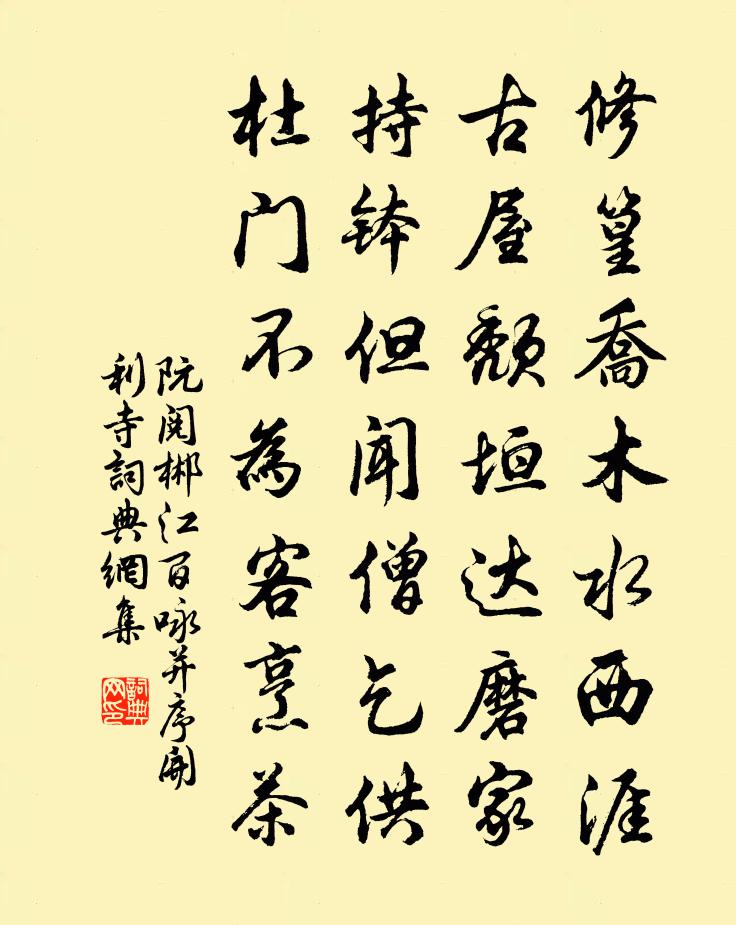 修篁喬木水西涯
古屋颓垣达磨家
持钵但闻僧乞供
杜门不為客烹茶
阮閱郴江百咏并序開
利寺詞典網集
詞典
网印